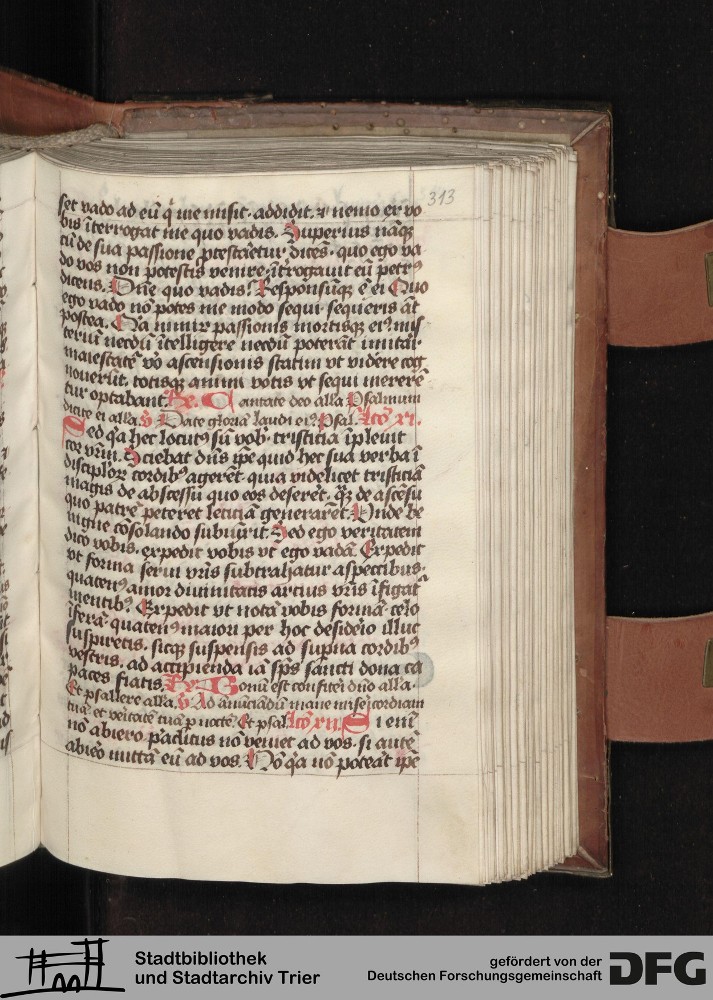 313
set vado ad eū q̇ me misit. addidit. ⁊ nemo ex vo
bis īterrogat me quo vadis. Superius nāq̢
cū de sua passione ꝓtestaretur dices. quo ego va
do vos non potestis venire. īt̄rogauit eū petrꝰ
dicens. Dn̄e quo vadis? Responsūq̢ ē ei Quo
ego vado nō potes me modo sequi sequeris āt
postea. Qa nimirͬ passionis mortisq̢ eiꝰ mis
teriū necdū ītelligere necdū poterāt imitari
maiestatē v̊o ascensionis statim vt videre cog
nouerūt. totisq̢ animi votis vt sequi merere
tur optabant. Rx. Cantate deo alla Psalmum
dicite ei alla. v̄ Date gloriā laudi eiꝰ. Psal. Lc̄o xi.
Sed qa hec locutꝰ sū vob. tristicia īpleuit
cor vr̄m. Sciebat dn̄s ip̄e quid hec sua verba ī
discipl'oꝝ cordibꝰ agerēt. quia videlicet tristiciā
magis de abscessu quo eos deserēt. q̄ꝫ de ascēsu
quo patrē peteret leticiā generarēt. Unde be
nigne cōsolando subiūxit. Sed ego veritatem
dico vobis. expedit vobis vt ego vadā. Expedit
vt forma serui vr̄is subtrahatur aspectibus.
quatenꝰ amor diuinitatis artius vr̄is īfigat᷑
mentibꝰ. Expedit vt notā vobis formā celo
īferā. quatenꝰ maiori per hoc desiderio illuc
suspiretis. sicq̢ suspensis ad supna cordibꝰ
vestris. ad accipienda iā sp̄s sancti dona ca
paces fiatis. Rx. Bonū est confiteri dn̄o alla.
Et psallere alla. v̄ Ad anūciādū mane misericordiam
tuā. et veritatē tuā p noctē. Et psal. Lc̄o xii. Si enī
nō abiero paclitus nō veniet ad vos. si autē
abiero mittā eū ad vos. Nō qa nō poterāt ip̄e
Stadtbibliothek
und Stadtarchiv Trier
gefördert von der
Deutschen Forschungsgemeinschaft
DFG